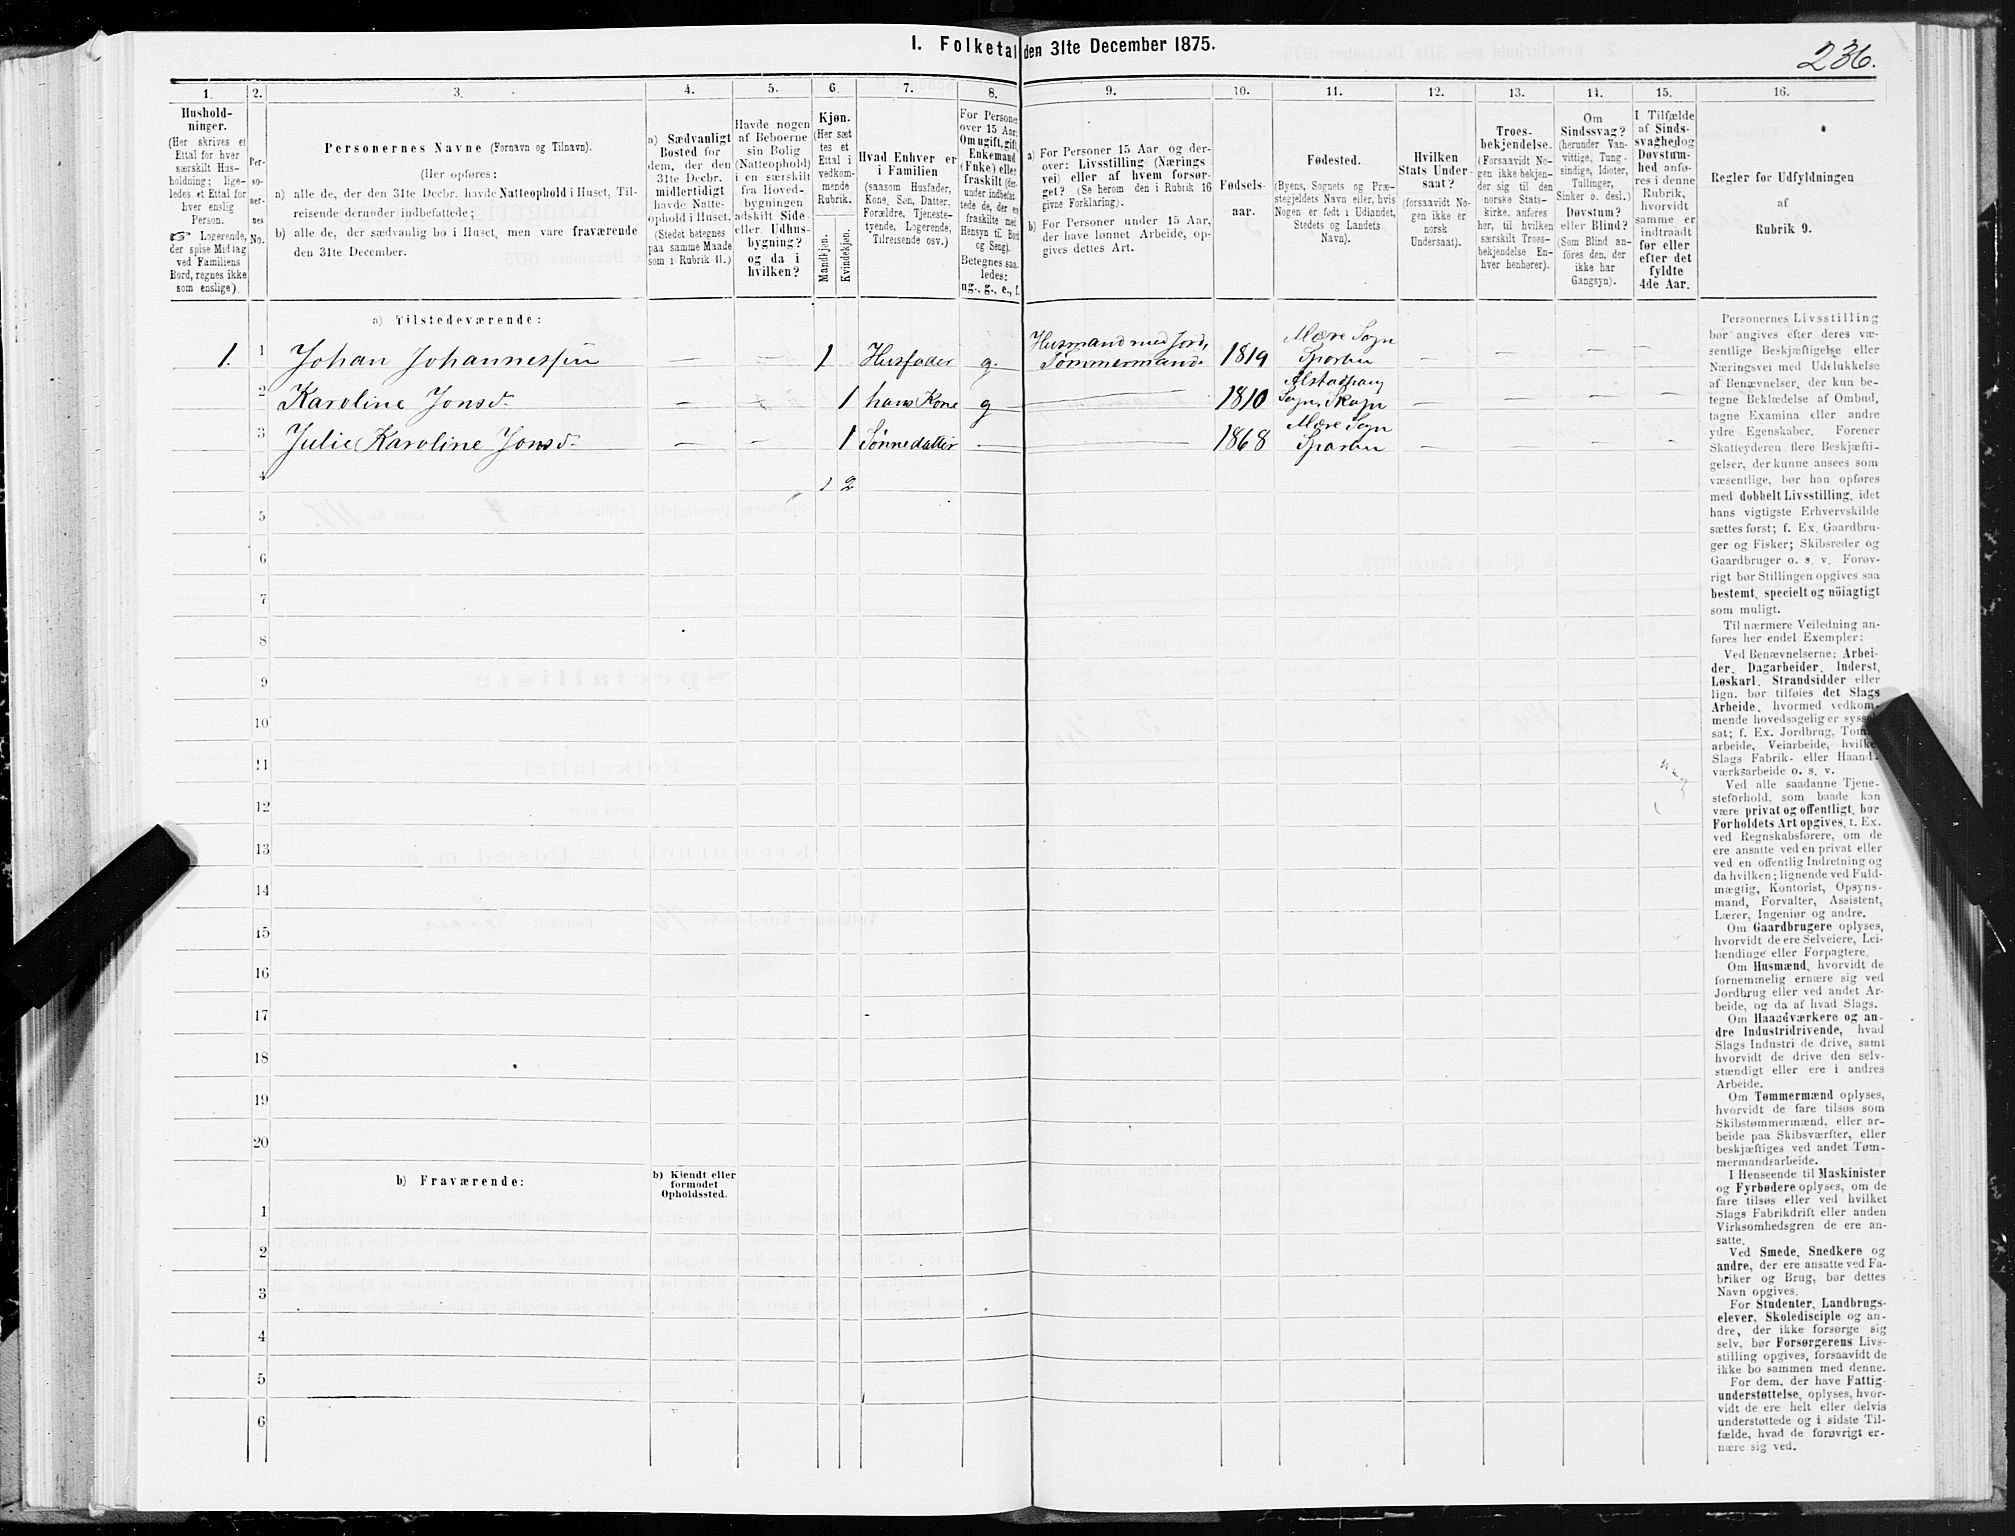 I. Folketal den 31te December 1875.
236.
1.
2.
3.
4.
5.
6.
7.
8.
9.
10.
11.
12.
13.
14.
15.
16.
Hushold-
ninger.
(Her skrives et
Ettal for hver
særskilt Hus-
holdning; lige-
ledes et Ettal for
hver enslig
Person.
Logerende,
der spise Middag
ved Familiens
Bord, regnes ikke
som enslige).
Per-
so-
ner-
nes
No.
Personernes Navne (Fornavn og Tilnavn).
(Her opføres:
a) alle de, der den 31te Decbr. havde Natteophold i Huset, Til-
reisende derunder indbefattede;
b) alle de, der sædvanlig bo i Huset, men vare fraværende
den 31te December.
a) Sædvanligt
Bosted for
dem, der den
31te Decbr.
midlertidigt
havde Natte-
ophold i Huset.
(Stedet betegnes
paa samme Maade
som i Rubrik 11.)
Havde nogen
af Beboerne
sin Bolig
(Natteophold)
i en særskilt
fra Hoved-
bygningen
adskilt Side-
eller Udhus-
bygning?
og da i
hvilken?
Kjøn.
(Her sæt
tes et
Ettal i
vedkom-
mende
Rubrik.
Mandkjøn.
Kvindekjøn.
Hvad Enhver er
i Familien
(saasom Husfader,
Kone, Søn, Datter,
Forældre, Tjeneste-
tyende, Logerende,
Tilreisende osv.)
For Personer
over 15 Aar:
Om ugift, gift,
Enkemand
(Enke) eller
fraskilt (der-
under indbefat-
tede de, der ere
fraskilte med
Hensyn til Bord
og Seng).
Betegnes saa-
ledes:
ug., g., e., f.
a) For Personer 15 Aar og der-
over: Livsstilling (Nærings
vei) eller af hvem forsør-
get? (Se herom den i Rubrik 16
givne Forklaring).
b) For Personer under 15 Aar,
der have lønnet Arbeide, op-
gives dettes Art.
Fødsels-
aar.
Fødested.
(Byens, Sognets og Præ-
stegjeldets Navn eller, hvis
Nogen er født i Udlandet,
Stedets og Landets
Navn).
Hvilken
Stats Under-
saat?
(forsaavidt No-
gen ikke er
norsk
Undersaat).
Troes-
bekjendelse.
(Forsaavidt No-
gen ikke bekjen-
der sig til den
norske Stats-
kirke, anføres
her, til hvilken
særskilt Troes-
bekjendelse En-
hver henhører).
Om
Sindssvag?
(herunder Van-
vittige, Tung-
sindige, Idioter,
Tullinger,
Sinker o. desl.)
Døvstum?
eller Blind?
(Som Blind an-
føres den, der
ikke har
Gangsyn).
I Tilfælde
af Sinds-
svaghed og
Døvstum-
hed anfø-
res i denne
Rubrik,
hvorvidt
samme er
indtraadt
før eller
efter det
fyldte
4de Aar.
Regler for Udfyldningen
af
Rubrik 9.
a) Tilstedeværende:
1. 1 Johan Johannessen — — 1 Husfader g. Husmand med Jord, Tømmermand 1819 Mære Sogn Sparbu — — — —
2 Karoline Jonsd. — — 1 hans Kone g — 1810 Alstadhaug Sogn, Skogn — — — —
3 Julie Karoline Jonsd. — — 1 Sønnedatter — — 1868 Mære Sogn Sparbu — — — —
4 1 2
5
6
7
8
9
10
11
12
13
14
15
16
17
18
19
20
b) Fraværende:
b) Kjendt eller
formodet
Opholdssted.
1
2
3
4
5
6
Personernes Livsstilling
bør angives efter deres væ-
sentlige Beskjæftigelse eller
Næringsvei med Udelukkelse
af Benævnelser, der kun be-
tegne Beklædelse af Ombud,
tagne Examina eller andre
ydre Egenskaber. Forener
Skatteyderen flere Beskjæfti-
gelser, der kunne ansees som
væsentlige, bør han opføres
med dobbelt Livsstilling, idet
hans vigtigste Erhvervskilde
sættes først; f. Ex. Gaardbru-
ger og Fisker; Skibsreder og
Gaardbruger o. s. v. Forøv-
rigt bør Stillingen opgives saa
bestemt, specielt og nöiagtigt
som muligt.
Til nærmere Veiledning an-
føres her endel Exempler:
Ved Benævnelserne: Arbei-
der, Dagarbeider, Inderst,
Løskarl, Strandsidder eller
lign. bør tilføies det Slags
Arbeide, hvormed vedkom-
mende hovedsagelig er syssel-
sat; f. Ex. Jordbrug, Tomte-
arbeide, Veiarbeide, hvilket
Slags Fabrik- eller Haand-
værksarbeide o. s. v.
Ved alle saadanne Tjene-
steforhold, som baade kan
være privat og offentligt, bør
Forholdets Art opgives, t. Ex.
ved Regnskabsførere, om de
ere ansatte ved en privat eller
ved en offentlig Indretning og
da hvilken; lignende ved Fuld-
mægtig, Kontorist, Opsyns-
mand, Forvalter, Assistent,
Lærer, Ingeniør og andre.
Om Gaardbrugere oplyses,
hvorvidt de ere Selveiere, Lei-
lændinge eller Forpagtere.
Om Husmænd, hvorvidt de
fornemmelig ernære sig ved
Jordbrug eller ved andet Ar-
beide, og da af hvad Slags.
Om Haandværkere og an-
dre Industridrivende, hvad
Slags Industri de drive, samt
hvorvidt de drive den selv-
stændigt eller ere i andres
Arbeide.
Om Tømmermænd oplyses,
hvorvidt de fare tilsøs som
Skibstømmermænd, eller ar-
beide paa Skibsværfter, eller
beskjæftiges ved andet Tøm-
mermandsarbeide.
I Henseende til Maskinister
og Fyrbødere oplyses, om de
fare tilsøs eller ved hvilket
Slags Fabrikdrift eller anden
Virksomhedsgren de ere an-
satte.
Ved Smede, Snedkere og
andre, der ere ansatte ved Fa-
briker og Brug, bør dettes
Navn opgives.
For Studenter, Landbrugs-
elever, Skoledisciple og an-
dre, der ikke forsørge sig
selv, bør Forsørgerens Livs-
stilling opgives, forsaavidt de
ikke bo sammen med denne.
For dem, der have Fattig-
understøttelse, oplyses, hvor-
vidt de ere helt eller delvis
understøttede og i sidste Til-
fælde, hvad de forøvrigt er-
nære sig ved.